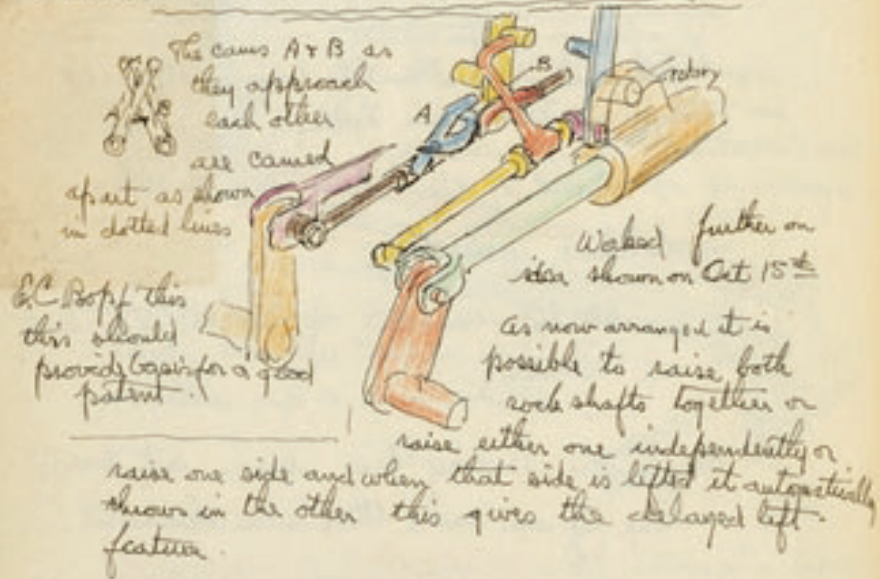 The cams A & B as
they approach
each other
are camed
apart as shown
in dotted lines
A
B
rotary
E.C. Bopf this
this should
provide basis for a good
patent.
Worked further on
idea shown on Oct 15th
As now arranged it is
possible to raise both
rock shafts together or
raise either one independently or
raise one side and when that side is lifted it automatically
throws in the other this gives the delayed lift
feature.